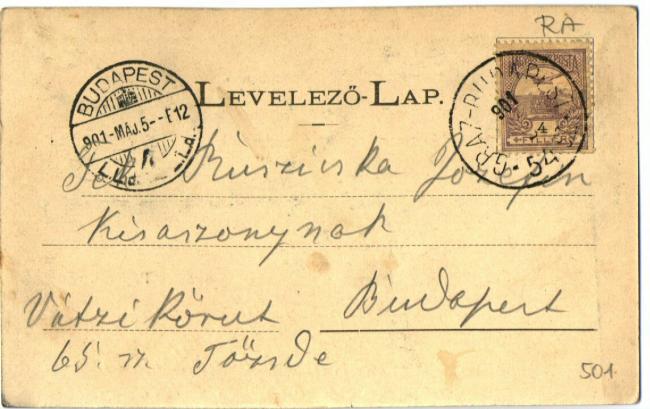 RA
LEVELEZŐ-LAP.
BUDAPEST
901-MÁJ.5--E12
GRAZ-BUDAPEST
901
54
4
Tek Józefin
Kisaszonynak
Vátzi Körut Budapest
65. sz. Tőzsde
501